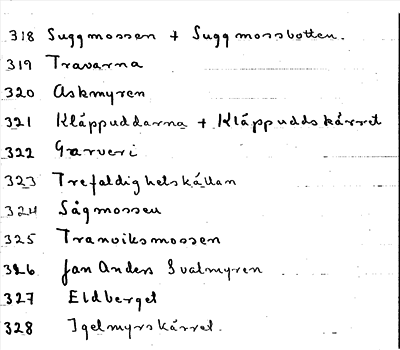 318 Suggmossen + Suggmossbotten.
319 Travarna
320 Askmyren
321 Kläppuddarna + Kläppuddskärret
322 Garveri
323 Trefaldighetskällan
324 Sågmossen
325 Tranviksmossen
326 Jan Anders Svalmyren
327 Eldberget
328 Igelmyrskärret.